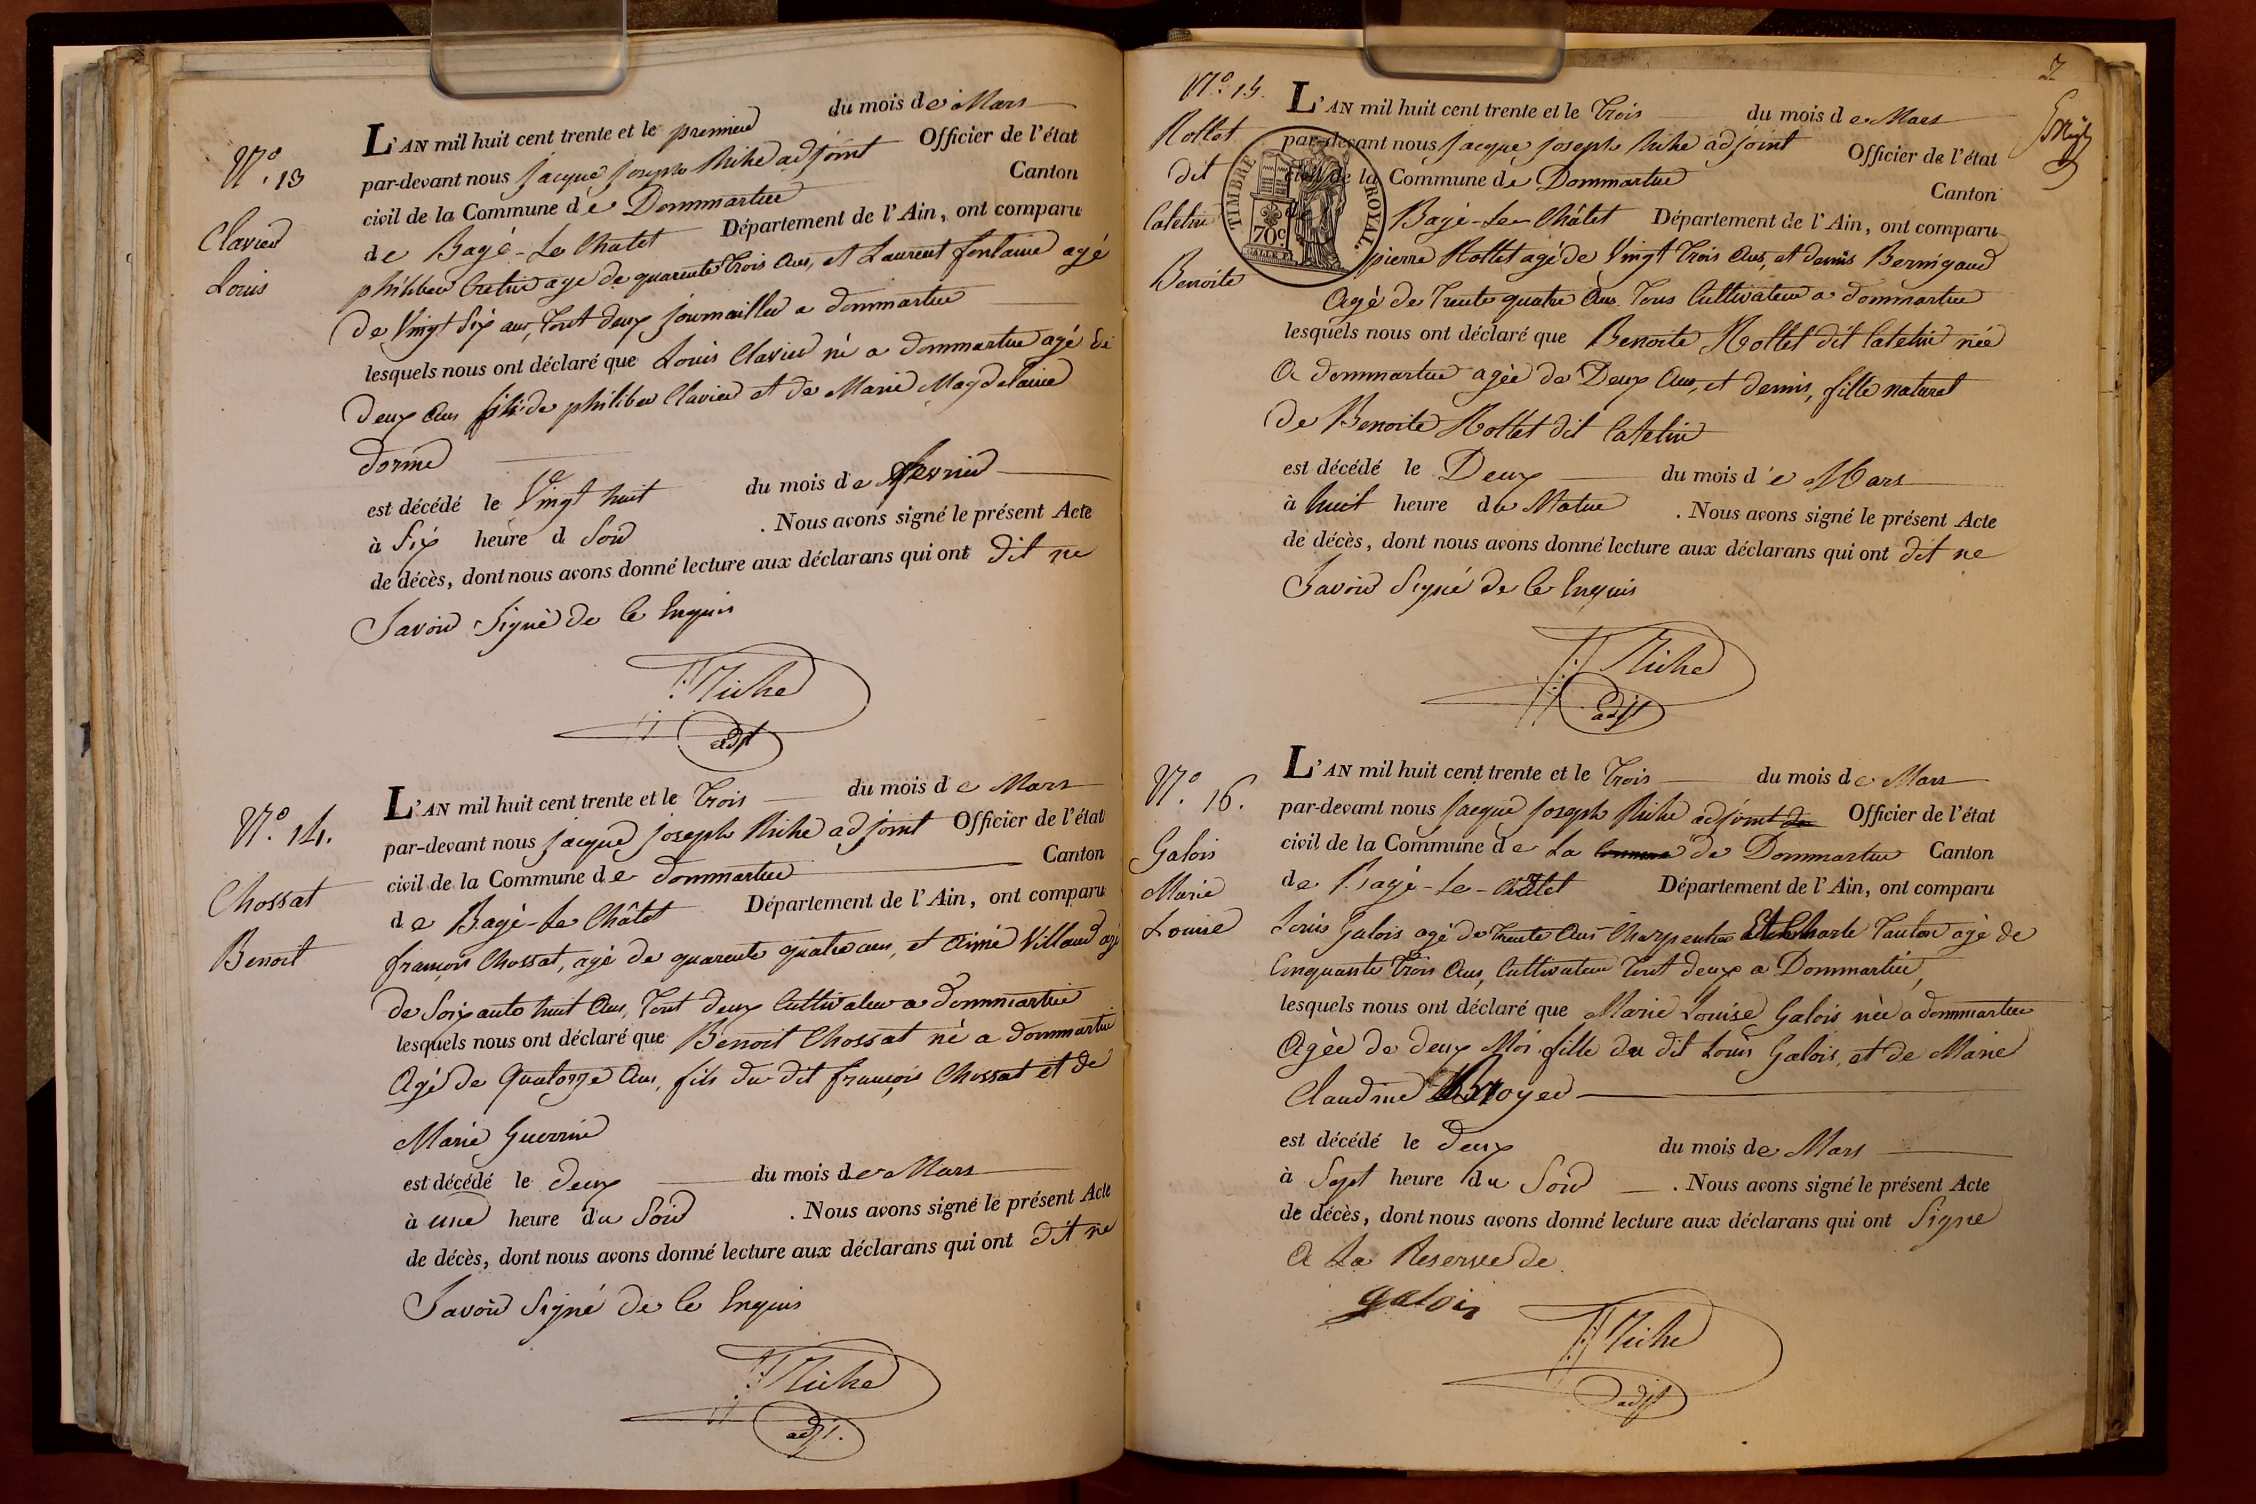 N.º 13
Clavier
Louis
L'AN mil huit cent trente et le premier du mois de Mars
par-devant nous jacque joseph Riche adjoint Officier de l'état
civil de la Commune de Dommartin Canton
de Bagé-Le Chatel Département de l'Ain, ont comparu
philiber Cretin agé de quarente trois ans, et Laurent fontaine agé
de Vingt Six ans, tout deux journaillier a dommartin
lesquels nous ont déclaré que Louis Clavier né a dommartin agé de
deux ans fils de philiber Clavier et de Marie Magdelaine
dorme
est décédé le Vingt huit du mois de fevrier
à Six heure d Soir . Nous avons signé le présent Acte
de décès, dont nous avons donné lecture aux déclarans qui ont dit ne
Savoir Signé de ce Enquis
Riche
adjt
N.º 14.
Chossat
Benoit
L'AN mil huit cent trente et le trois du mois de Mars
par-devant nous jacque joseph Riche adjoint Officier de l'état
civil de la Commune de dommartin Canton
de Bagé-Le Châtel Département de l'Ain, ont comparu
françois Chossat, agé de quarente quatre ans, et Aimé Villaud agé
de Soixante huit ans, tout deux Cultivateur a dommartin
lesquels nous ont déclaré que Benoit Chossat né a dommartin
Agé de Quatorze ans, fils du dit françois Chossat et de
Marie Guerrin
est décédé le deux du mois de Mars
à une heure du Soir . Nous avons signé le présent Acte
de décès, dont nous avons donné lecture aux déclarans qui ont dit ne
Savoir Signé de ce Enquis
Riche
adjt.
7
N.º 15.
Rollet
dit
Catelin
Benoite
TIMBRE ROYAL
70c
L'AN mil huit cent trente et le trois du mois de Mars
par-devant nous jacque joseph Riche adjoint Officier de l'état
civil de la Commune de Dommartin Canton
de Bagé-Le-Châtel Département de l'Ain, ont comparu
pierre Rollet agé de Vingt trois ans, et denis Bernigaud
Agé de trente quatre ans tous Cultivateur a dommartin
lesquels nous ont déclaré que Benoite Rollet dit Catelin née
a dommartin agée de Deux ans, et demis, fille naturel
de Benoite Rollet dit Catelin
est décédé le Deux du mois de Mars
à huit heure du Matin . Nous avons signé le présent Acte
de décès, dont nous avons donné lecture aux déclarans qui ont dit ne
Savoir Signé de ce Enquis
Riche
adjt
N.º 16.
Galois
Marie
Louise
L'AN mil huit cent trente et le trois du mois de Mars
par-devant nous jacque joseph Riche adjoint de Officier de l'état
civil de la Commune de La Commune de Dommartin Canton
de Bagé-Le-Châtel Département de l'Ain, ont comparu
Louis Galois agé de trente ans Charpentier Et Charle Taulon agé de
Cinquante trois ans, Cultivateur tout deux a Dommartin,
lesquels nous ont déclaré que Marie Louise Galois née a dommartin
Agée de deux Moi fille du dit Louis Galois, et de Marie
Claudine Broyer
est décédé le deux du mois de Mars
à Sept heure du Soir . Nous avons signé le présent Acte
de décès, dont nous avons donné lecture aux déclarans qui ont Signe
A La Reserve de
galois
Riche
adjt